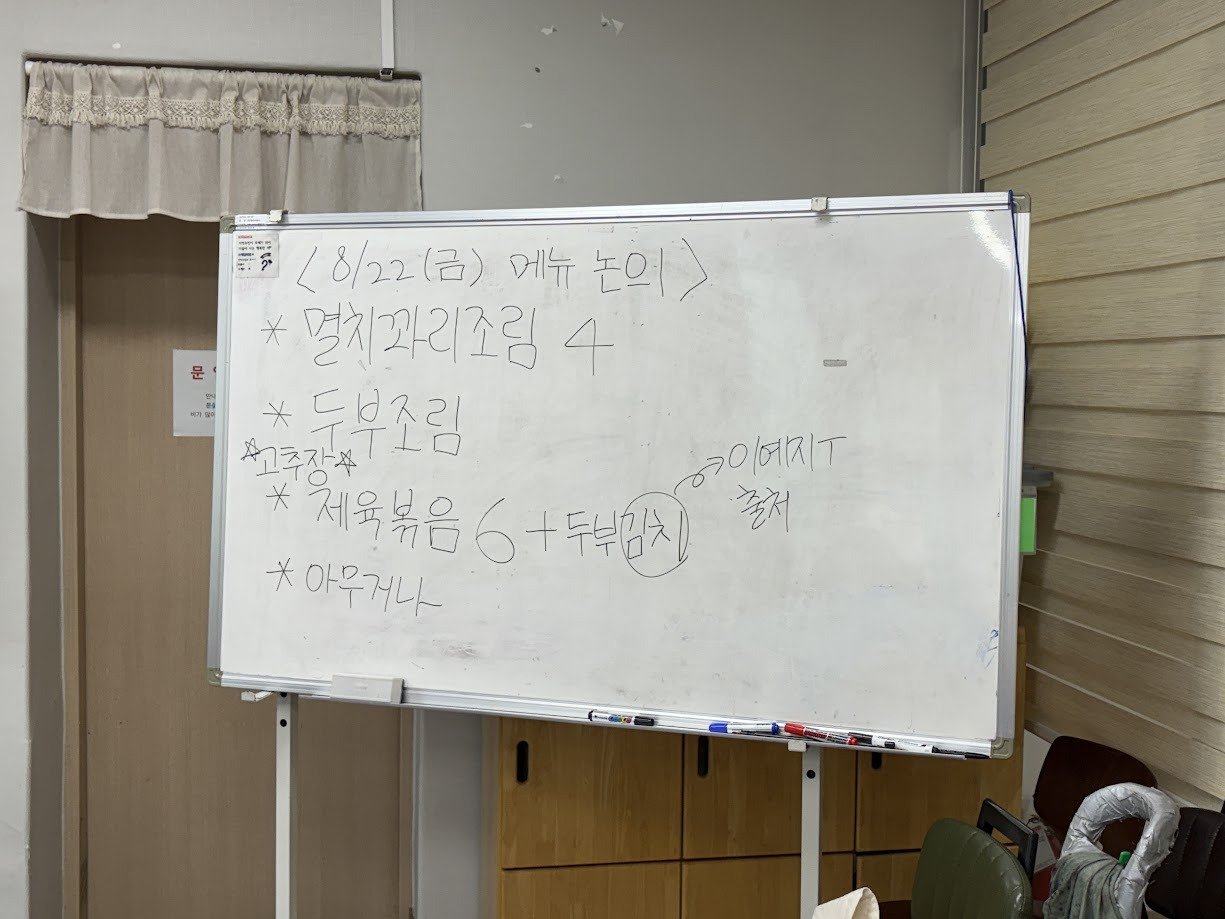 <8/22(금) 메뉴 논의>
* 멸치꽈리조림 4
* 두부조림
☆고추장☆
* 제육볶음 6 + 두부김치
이예지T
출처
* 아무거나
문